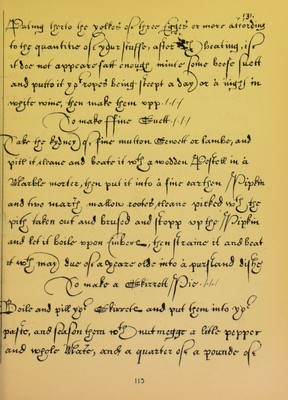 131.
Puting therto the yolkes of three Egges or more according
to the quantitie of your stuffe, after beating, if
it doe not appeare fatt enough mince some beefe suett
and putto it yor ropes being steept a day or a night in
white wine, then make them upp ./././
To make ffine Suett ./././
Take the kydney of fine mutton Sewett or lambe, and
pill it cleane and beate it wth a wodden Pestell in a
Marble morter, then put it into a fine earthen Pipkin
and two marsh mallow rootes cleane picked wth the
pith taken out and brused and stopp up the Pipkin
and let it boile upon Embers, then straine it and beat
it wth may due of a yeare olde into a pursland dishe
To make a Skirrett Pie ./././
Boile and pill yor Skirrets and put them into yor
paste, and season them wth nutmegge a litle pepper
and whole Mace, and a quarter of a pounde of
115